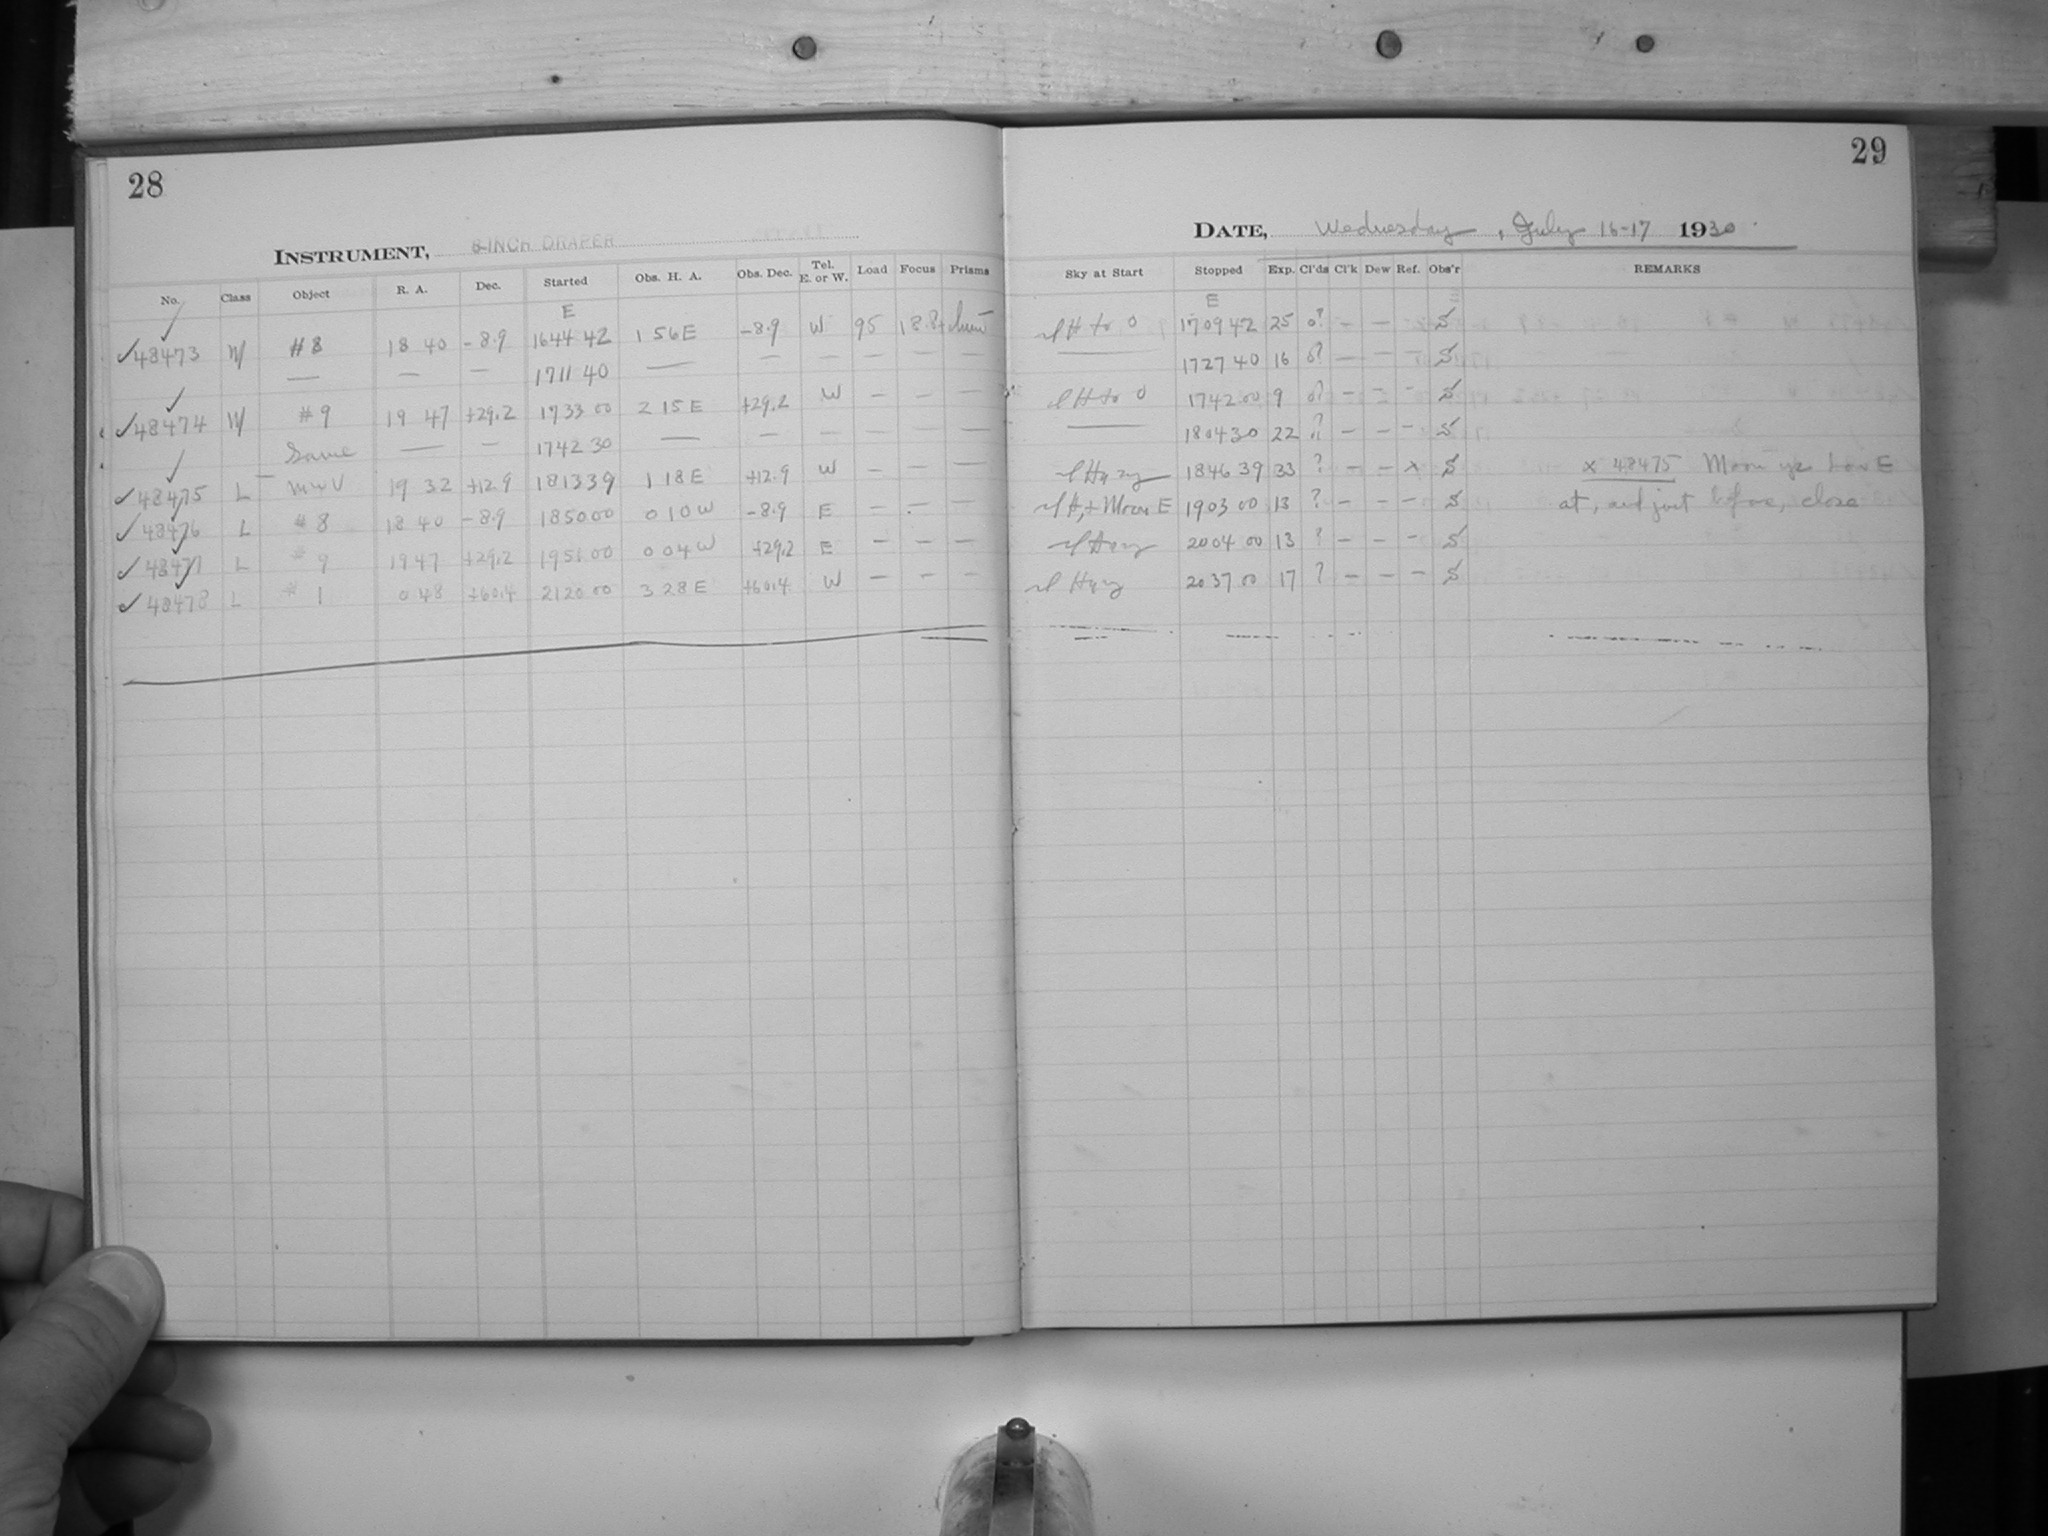 28
INSTRUMENT, 8-INCH DRAPER
No. Class Object R. A. Dec. Started Obs. H. A. Obs. Dec. Tel. E. or W. Load Focus Prisms
E
✓ 48473 #8 18 40 -8.9 16 44 42 1 56 E -8.9 W 95 18.8
— — — 17 11 40 — — — — — —
✓ 48474 #9 19 47 +29.2 17 33 00 2 15 E +29.2 W — — —
Same — — 17 42 30 — — — — — —
✓ 48475 L 19 32 +12.9 18 13 39 1 18 E +12.9 W — — —
✓ 48476 L #8 18 40 -8.9 18 50 00 0 10 W -8.9 E — — —
✓ 48477 L #9 19 47 +29.2 19 51 00 0 04 W +29.2 E — — —
✓ 48478 L #1 0 48 +60.4 21 20 00 3 28 E +60.4 W — — —
29
DATE, Wednesday, July 16-17 1930.
Sky at Start Stopped Exp. Cl'ds Cl'k Dew Ref. Obs'r REMARKS
E
H to 0 17 09 42 25 0? — — S
— 17 27 40 16 0? — — — S
H to 0 17 42 00 9 0? — — — S
— 18 04 30 22 ? — — — S
18 46 39 33 ? — — x S x 48475 Moon Low E
Moon E 19 03 00 13 ? — — — S at, and just before, close
20 04 00 13 ? — — — S
20 37 00 17 ? — — — S